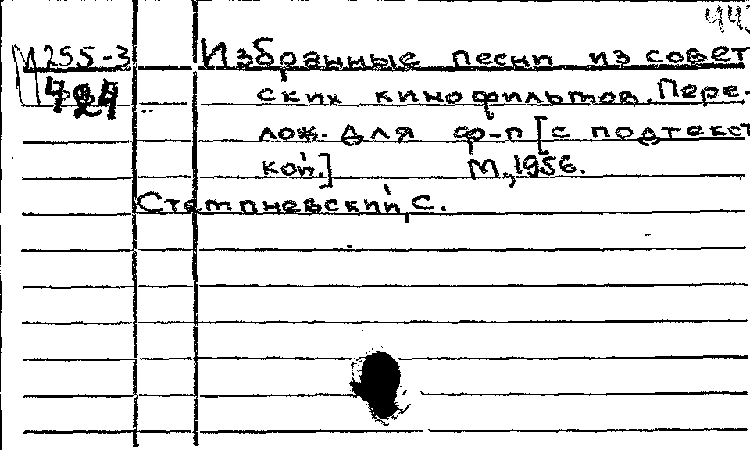 443
М 255-3 Избранные песни из совет
ских кинофильтов. Пере-
лож. для ф-п [с подтекст
кой.] М., 1956.
Стемпневский, С.